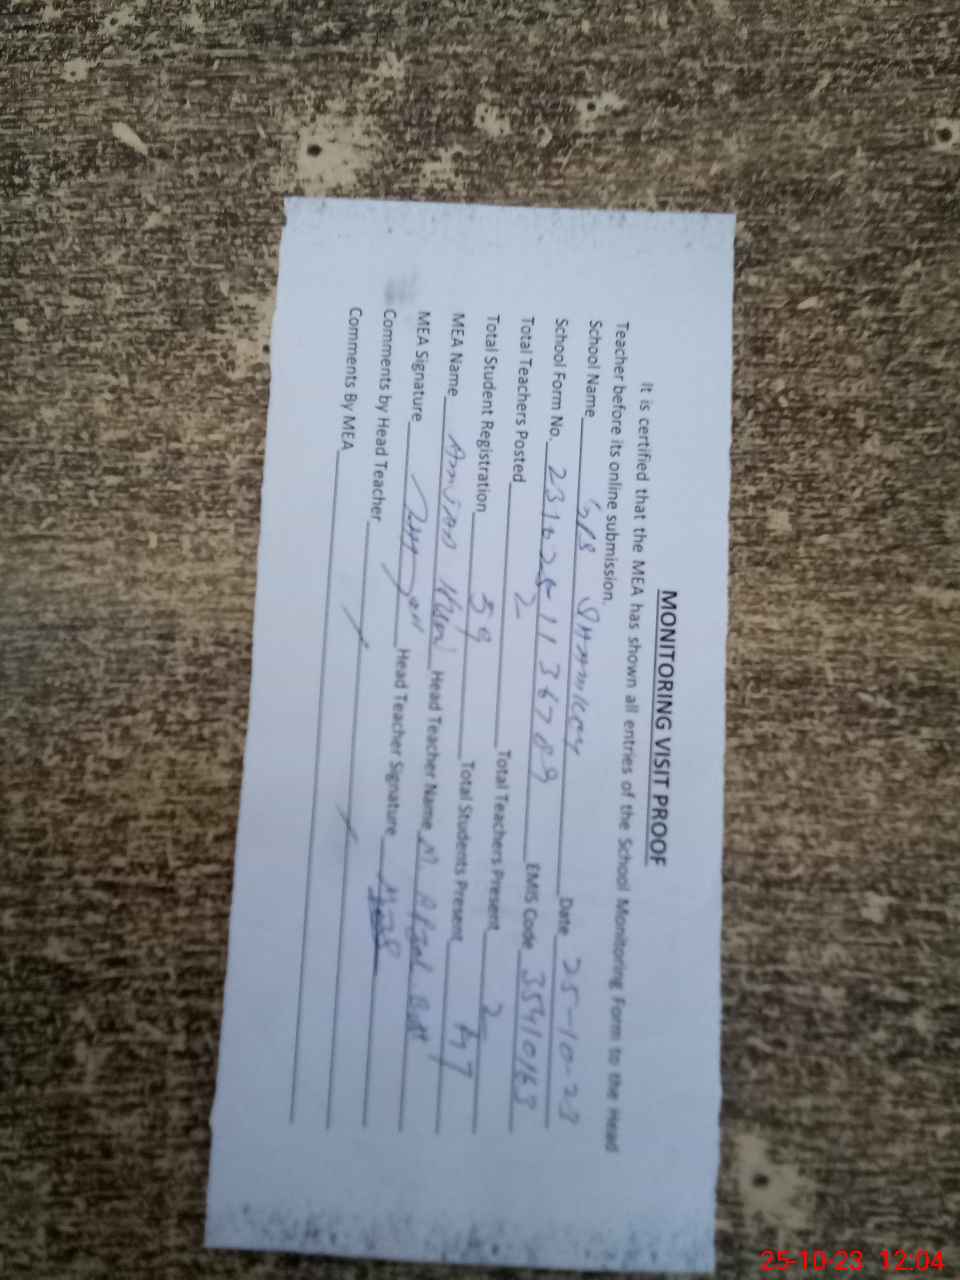 MONITORING VISIT PROOF
It is certified that the MEA has shown all entries of the School Monitoring Form to the Head
Teacher before its online submission.
School Name Date 25-10-23
School Form No. 23102511136789 EMIS Code 35410163
Total Teachers Posted 2 Total Teachers Present 2
Total Student Registration 59 Total Students Present 47
MEA Name Head Teacher Name M. Afzal Butt
MEA Signature Head Teacher Signature
Comments by Head Teacher
Comments By MEA
25-10-23 12:04